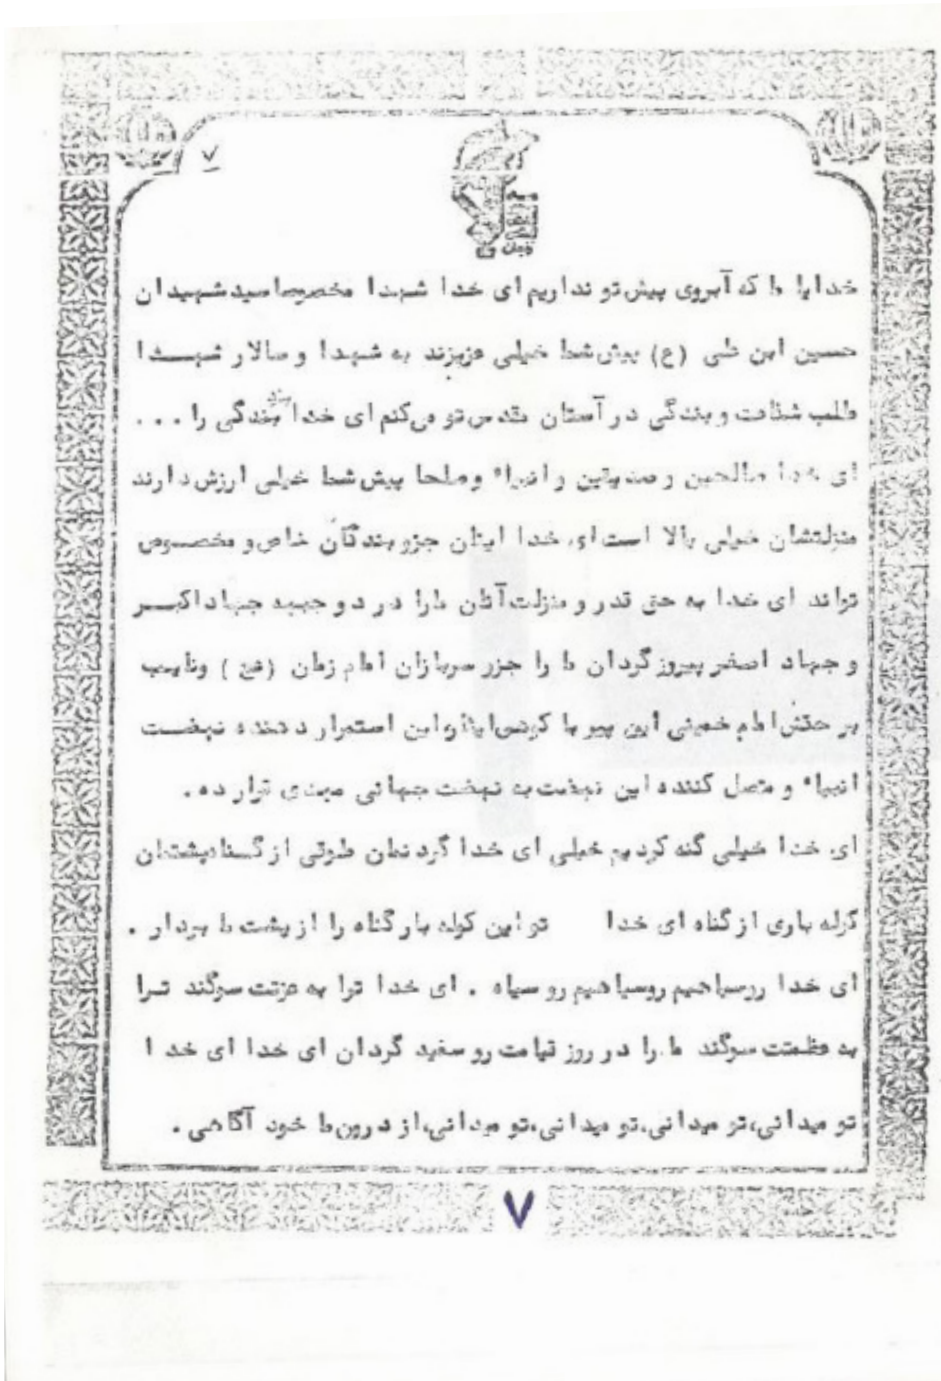 ۷
خدایا ما که آبروی پیش تو نداریم ای خدا شهدا مخصوصا سید شهیدان
حسین ابن علی (ع) پیش شما خیلی عزیزند به شهدا و سالار شهدا
طلب شفاعت و بندگی در آستان مقدس تو می‌کنم ای خدا بندگی را ...
ای خدا صالحین و صدیقین و انبیاء و صلحا پیش شما خیلی ارزش دارند
منزلتشان خیلی بالا است ای خدا اینان جزو بندگان خاص و مخصوص
تواند ای خدا به حق قدر و منزلت آنان ما را در دو جبهه جهاد اکبر
و جهاد اصغر پیروز گردان ما را جزو سربازان امام زمان (عج) و نایب
بر حقش امام خمینی این پیر با این استمرار دهنده نهضت
انبیاء و متصل کننده این نهضت به نهضت جهانی مهدی قرار ده.
ای خدا خیلی گنه کردیم خیلی ای خدا گردنمان طوقی از گناه پشتمان
کوله باری از گناه ای خدا تو این کوله بار گناه را از پشت ما بردار.
ای خدا روسیاهیم روسیاهیم رو سیاه. ای خدا ترا به عزتت سوگند ترا
به عظمتت سوگند ما را در روز قیامت رو سفید گردان ای خدا ای خدا
تو میدانی، تو میدانی، تو میدانی، تو میدانی، از درون ما خود آگاهی.
۷